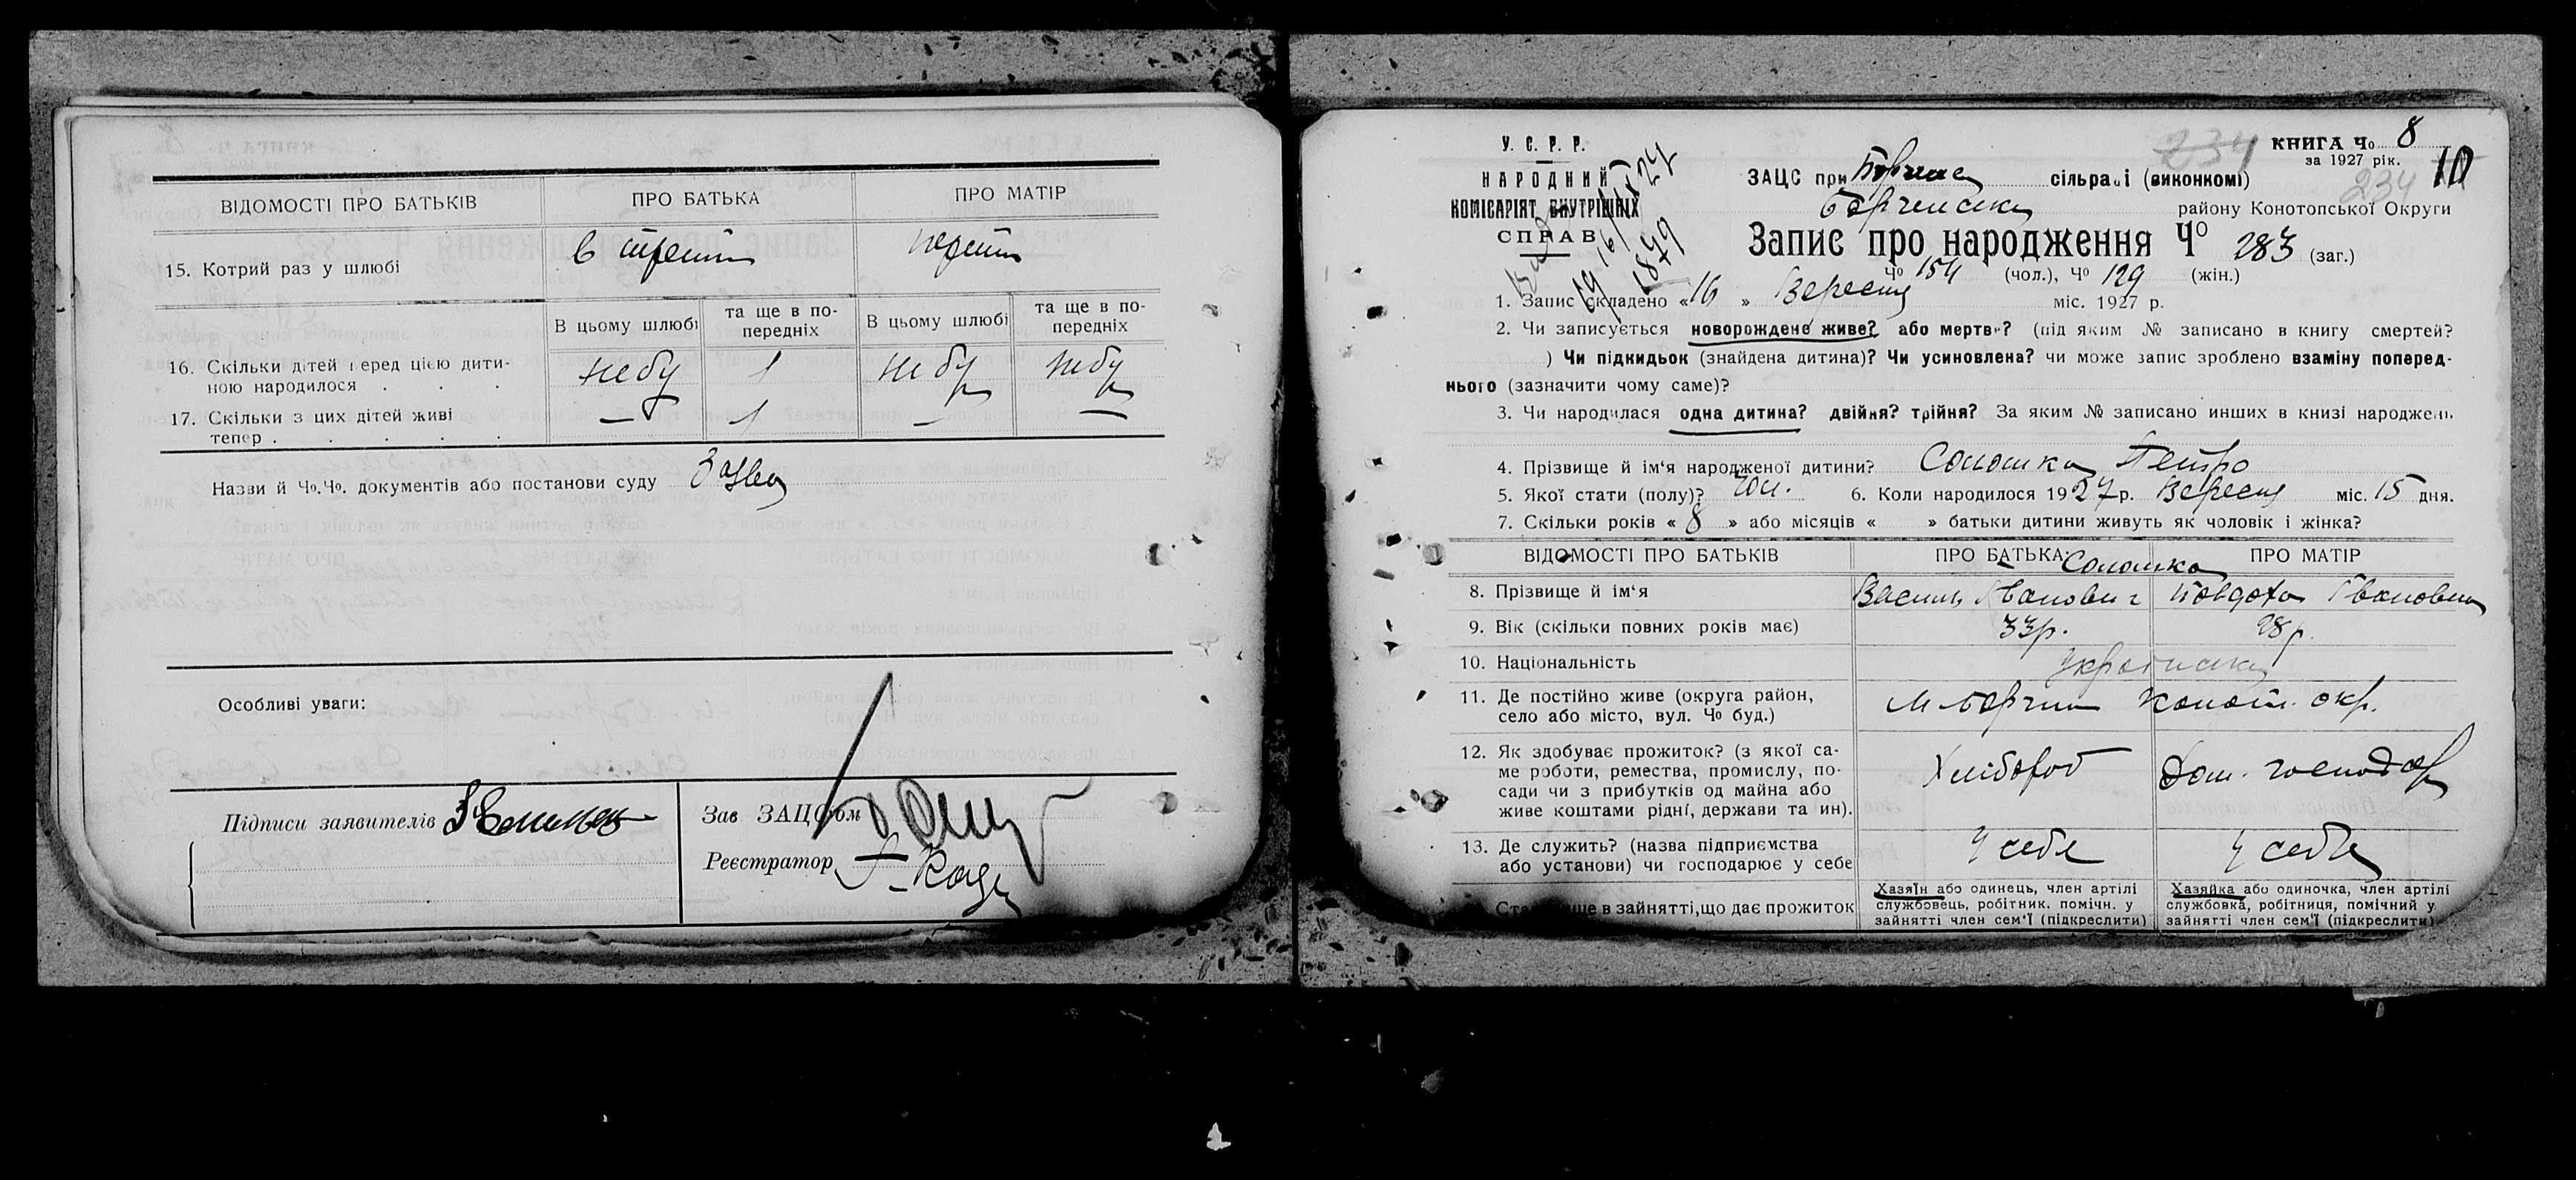 ВІДОМОСТІ ПРО БАТЬКІВ
ПРО БАТЬКА
ПРО МАТІР
15. Котрий раз у шлюбі
в третій
первий
В цьому шлюбі
та ще в по-
передніх
В цьому шлюбі
та ще в по-
передніх
16. Скільки дітей перед цією дити-
ною народилося . . .
небу
1
небу
небу
17. Скільки з цих дітей живі
тепер . . . . .
—
1
—
—
Назви й Чо.Чо. документів або постанови суду
Заява
Особливі уваги:
Підписи заявителів
Зав ЗАЦС'ом
Реєстратор
У. С. Р. Р.
НАРОДНИЙ
КОМІСАРІЯТ ВНУТРІШНІХ
СПРАВ
1849
234
КНИГА Чо 8
за 1927 рік.
10
234
ЗАЦС при сільраді (виконкомі)
Борченськ району Конотопської Округи
Запис про народження Чо 283 (заг.)
Чо 154 (чол.), Чо 129 (жін.)
1. Запис складено «16» Вересня міс. 1927 р.
2. Чи записується новорождене живе? або мертве? (під яким № записано в книгу смертей?
) Чи підкидьок (знайдена дитина)? Чи усиновлена? чи може запис зроблено взаміну поперед-
нього (зазначити чому саме)?
3. Чи народилася одна дитина? двійня? трійня? За яким № записано инших в книзі народжень
4. Прізвище й ім'я народженої дитини? Соломка Петро
5. Якої стати (полу)? чол. 6. Коли народилося 1927 р. Вересня міс. 15 дня.
7. Скільки років «8» або місяців « » батьки дитини живуть як чоловік і жінка?
ВІДОМОСТІ ПРО БАТЬКІВ
ПРО БАТЬКА
ПРО МАТІР
Соломка
8. Прізвище й ім'я
Василь Іванович
Явдоха Івановна
9. Вік (скільки повних років має)
33р.
28р.
10. Національність
українська
11. Де постійно живе (округа район,
село або місто, вул. Чо буд.)
М Борзна Конот. окр.
12. Як здобуває прожиток? (з якої са-
ме роботи, ремества, промислу, по-
сади чи з прибутків од майна або
живе коштами рідні, держави та ин).
Хлібороб
Дом. господар
13. Де служить? (назва підприємства
або установи) чи господарює у себе
У себе
У себе
ще в зайнятті, що дає прожиток
Хазяїн або одинець, член артілі
службовець, робітник. помічн. у
зайнятті член сем'ї (підкреслити)
Хазяйка або одиночка, член артілі
службовка, робітниця, помічний у
зайнятті член сем'ї (підкреслити)